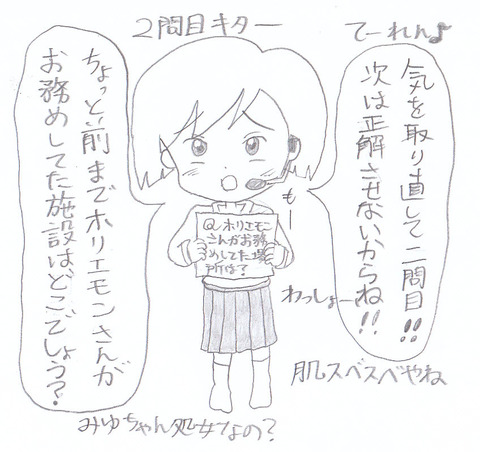 てーれん♪
２問目キター
気を取り直して二問目!!
次は正解させないからね!!
ちょっと前までホリエモンさんが
お務めしてた施設はどこでしょう？
もー
Q.ホリエモン
さんがお務
めしてた場
所は？
わっしょー
肌スベスベやね
みゆちゃん処女なの？